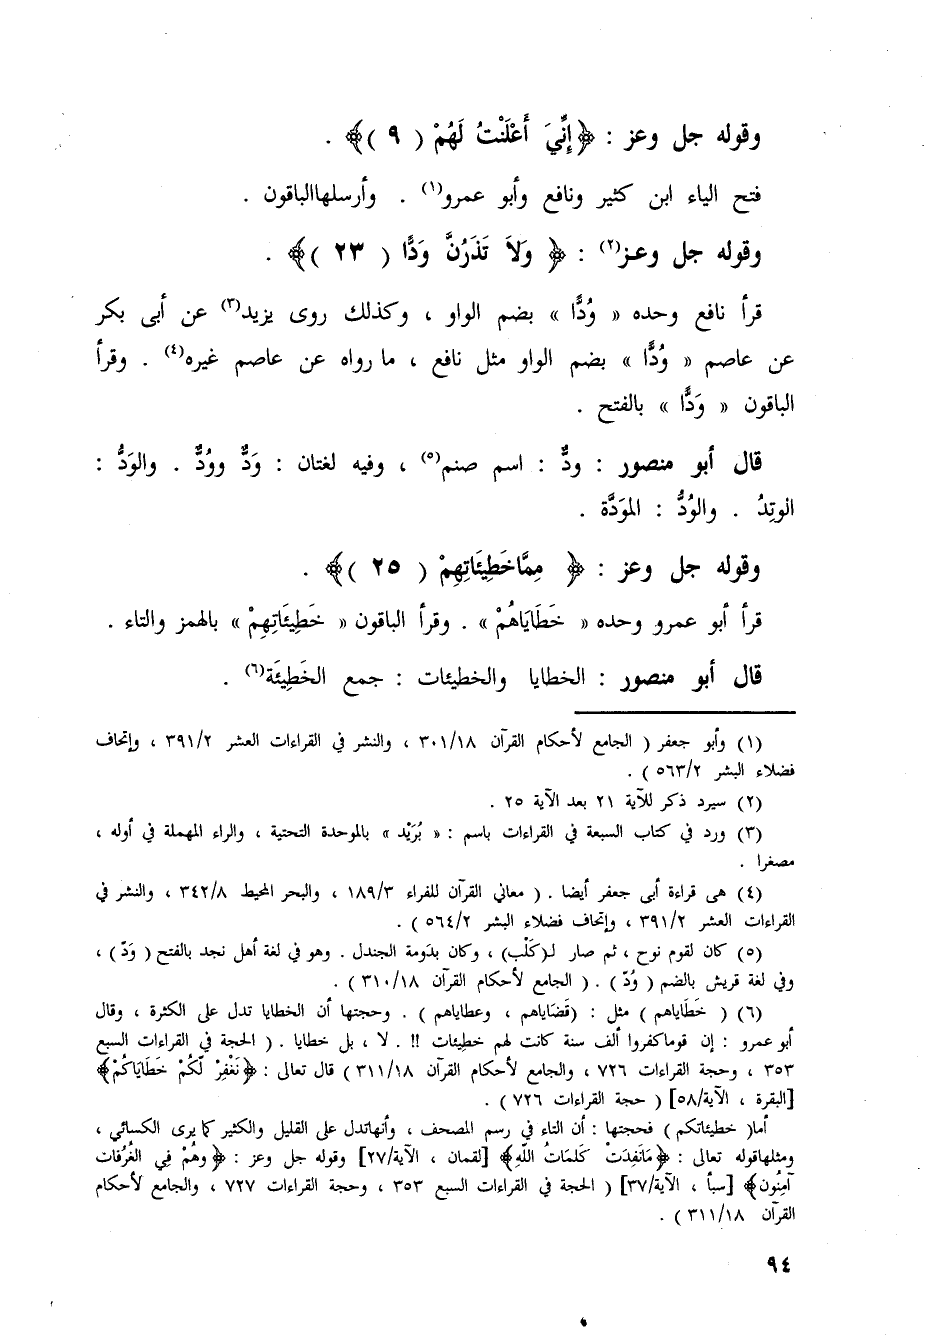 وقوله جل وعز : ﴿إِنِّيَ أَعْلَنْتُ لَهُمْ ( ٩ )﴾ .
فتح الياء ابن كثير ونافع وأبو عمرو(١) . وأرسلهاالباقون .
وقوله جل وعـز(٢) : ﴿ وَلاَ تَذَرُنَّ وَدًّا ( ٢٣ )﴾ .
قرأ نافع وحده « وُدًّا » بضم الواو ، وكذلك روى يزيد(٣) عن أبى بكر
عن عاصم « وُدًّا » بضم الواو مثل نافع ، ما رواه عن عاصم غيره(٤) . وقرأ
الباقون « وَدًّا » بالفتح .
قال أبو منصور : ودٌّ : اسم صنم(٥) ، وفيه لغتان : وَدٌّ ووُدٌّ . والوَدُّ :
الوتِدُ . والوُدُّ : المَوَدَّة .
وقوله جل وعز : ﴿ مِمَّاخَطِيئَاتِهِمْ ( ٢٥ )﴾ .
قرأ أبو عمرو وحده « خَطَايَاهُمْ » . وقرأ الباقون « خَطِيئَاتِهِمْ » بالهمز والتاء .
قال أبو منصور : الخطايا والخطيئات : جمع الخَطِيئَة(٦) .
(١) وأبو جعفر ( الجامع لأحكام القرآن ٣٠١/١٨ ، والنشر في القراءات العشر ٣٩١/٢ ، وإتحاف
فضلاء البشر ٥٦٣/٢ ) .
(٢) سيرد ذكر للآية ٢١ بعد الآية ٢٥ .
(٣) ورد في كتاب السبعة في القراءات باسم : « بُرَيْد » بالموحدة التحتية ، والراء المهملة في أوله ،
مصغرا .
(٤) هى قراءة أبى جعفر أيضا . ( معاني القرآن للفراء ١٨٩/٣ ، والبحر المحيط ٣٤٢/٨ ، والنشر في
القراءات العشر ٣٩١/٢ ، وإتحاف فضلاء البشر ٥٦٤/٢ ) .
(٥) كان لقوم نوح ، ثم صار لـ(كَلْب) ، وكان بدَومة الجندل . وهو في لغة أهل نجد بالفتح ( وَدّ ) ،
وفي لغة قريش بالضم ( وُدّ ) . ( الجامع لأحكام القرآن ٣١٠/١٨ ) .
(٦) ( خطَاياهم ) مثل : (قَضَاياهم ، وعطاياهم ) . وحجتها أن الخطايا تدل على الكثرة ، وقال
أبو عمرو : إن قوماكفروا ألف سنة كانت لهم خطِيئات !! . لا ، بل خطايا . ( الحجة في القراءات السبع
٣٥٣ ، وحجة القراءات ٧٢٦ ، والجامع لأحكام القرآن ٣١١/١٨ ) قال تعالى : ﴿نَغْفِرْ لَكُمْ خَطَايَاكُمْ﴾
[البقرة ، الآية/٥٨] ( حجة القراءات ٧٢٦ ) .
أما( خطيئاتكم ) فحجتها : أن التاء في رسم المصحف ، وأنهاتدل على القليل والكثير كما يرى الكسائي ،
ومثلهاقوله تعالى : ﴿مَانَفِدَتْ كَلمَاتُ اللّهِ﴾ [لقمان ، الآية/٢٧] وقوله جل وعز : ﴿وهُمْ فِي الغُرُفَات
آمِنُون﴾ [سبأ ، الآية/٣٧] ( الحجة في القراءات السبع ٣٥٣ ، وحجة القراءات ٧٢٧ ، والجامع لأحكام
القرآن ٣١١/١٨ ) .
٩٤